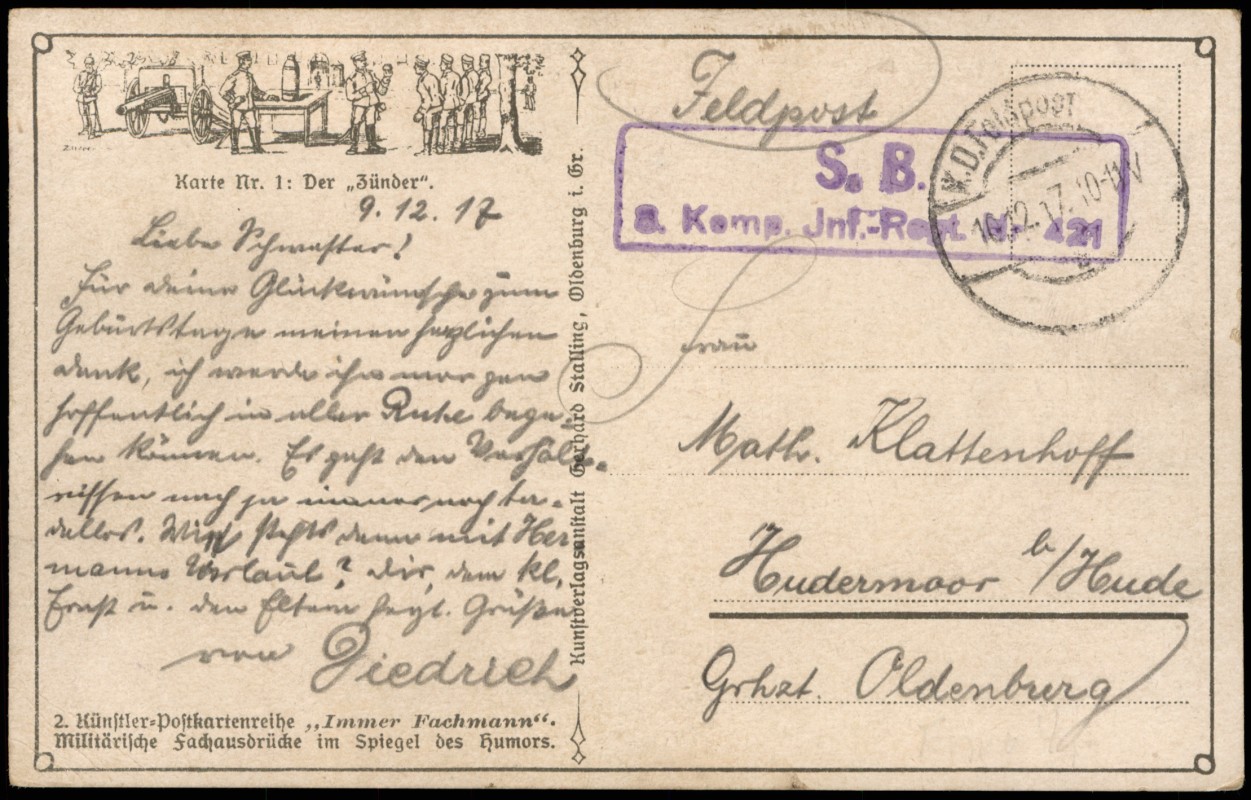 Karte Nr. 1: Der „Zünder“.
9. 12. 17
Liebe Schwester!
Für deine Glückwünsche zum
Geburtstage meinen herzlichen
Dank, ich werde ihn morgen
hoffentlich in aller Ruhe bege-
hen können. Es geht den Verhält-
nissen nach ja immer noch ta-
dellos. Wie stehts denn mit Her
manns Urlaub? Dir, dem kl.
Ernst u. den Eltern herzl. Grüße
von Diedrich
2. Künstler-Postkartenreihe „Immer Fachmann“.
Militärische Fachausdrücke im Spiegel des Humors.
Kunstverlagsanstalt Gerhard Stalling, Oldenburg i. Gr.
Feldpost
S. B.
8. Komp. Inf.-Regt. Nr. 421
K.D.Feldpost
10.12.17.10-11V
Frau
Math. Klattenhoff
Hudermoor b/Hude
Grhzt. Oldenburg